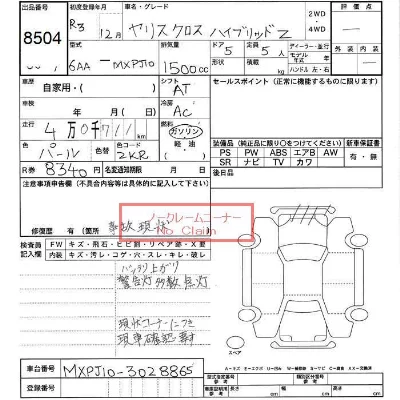 出品番号
8504
初度登録年月
R3 12月
車名・グレード
ヤリスクロス ハイブリッド Z
2WD
4WD
評価点
外装 内装
型式
6AA-MXPJ10
排気量
1500cc
ドア 5
定員 5人
ディーラー・並行
モデル 年
ハンドル 左・右
車歴
自家用・( )
シフト
AT
セールスポイント (正常に機能するものに限る)
車検
年 月
冷房
AC
走行
4万0千711km
燃料
ガソリン
軽油
( )
装備品 (純正品に限り○をつけてください)
PS PW ABS エアB AW
SR ナビ TV カワ
新車保証書
有・無
色
パール
色替
カラーNo.
2KR
後日品
R券
8340円
名変期限
注意事項申告欄 (不具合内容等は具体的に記入して下さい)
修復歴 有 (箇所 事故現状
ノークレームコーナー
No Claim
検査員
記入欄
FW キズ・飛石・ヒビ割・リペア跡・X要
内装 キズ・汚レ・コゲ・穴・スレ・キレ・破レ
バッテリ上がり
警告灯 多数点灯
現状コーナーにつき
現車確認 要
スペア
車台番号
MXPJ10-3028865
登録番号